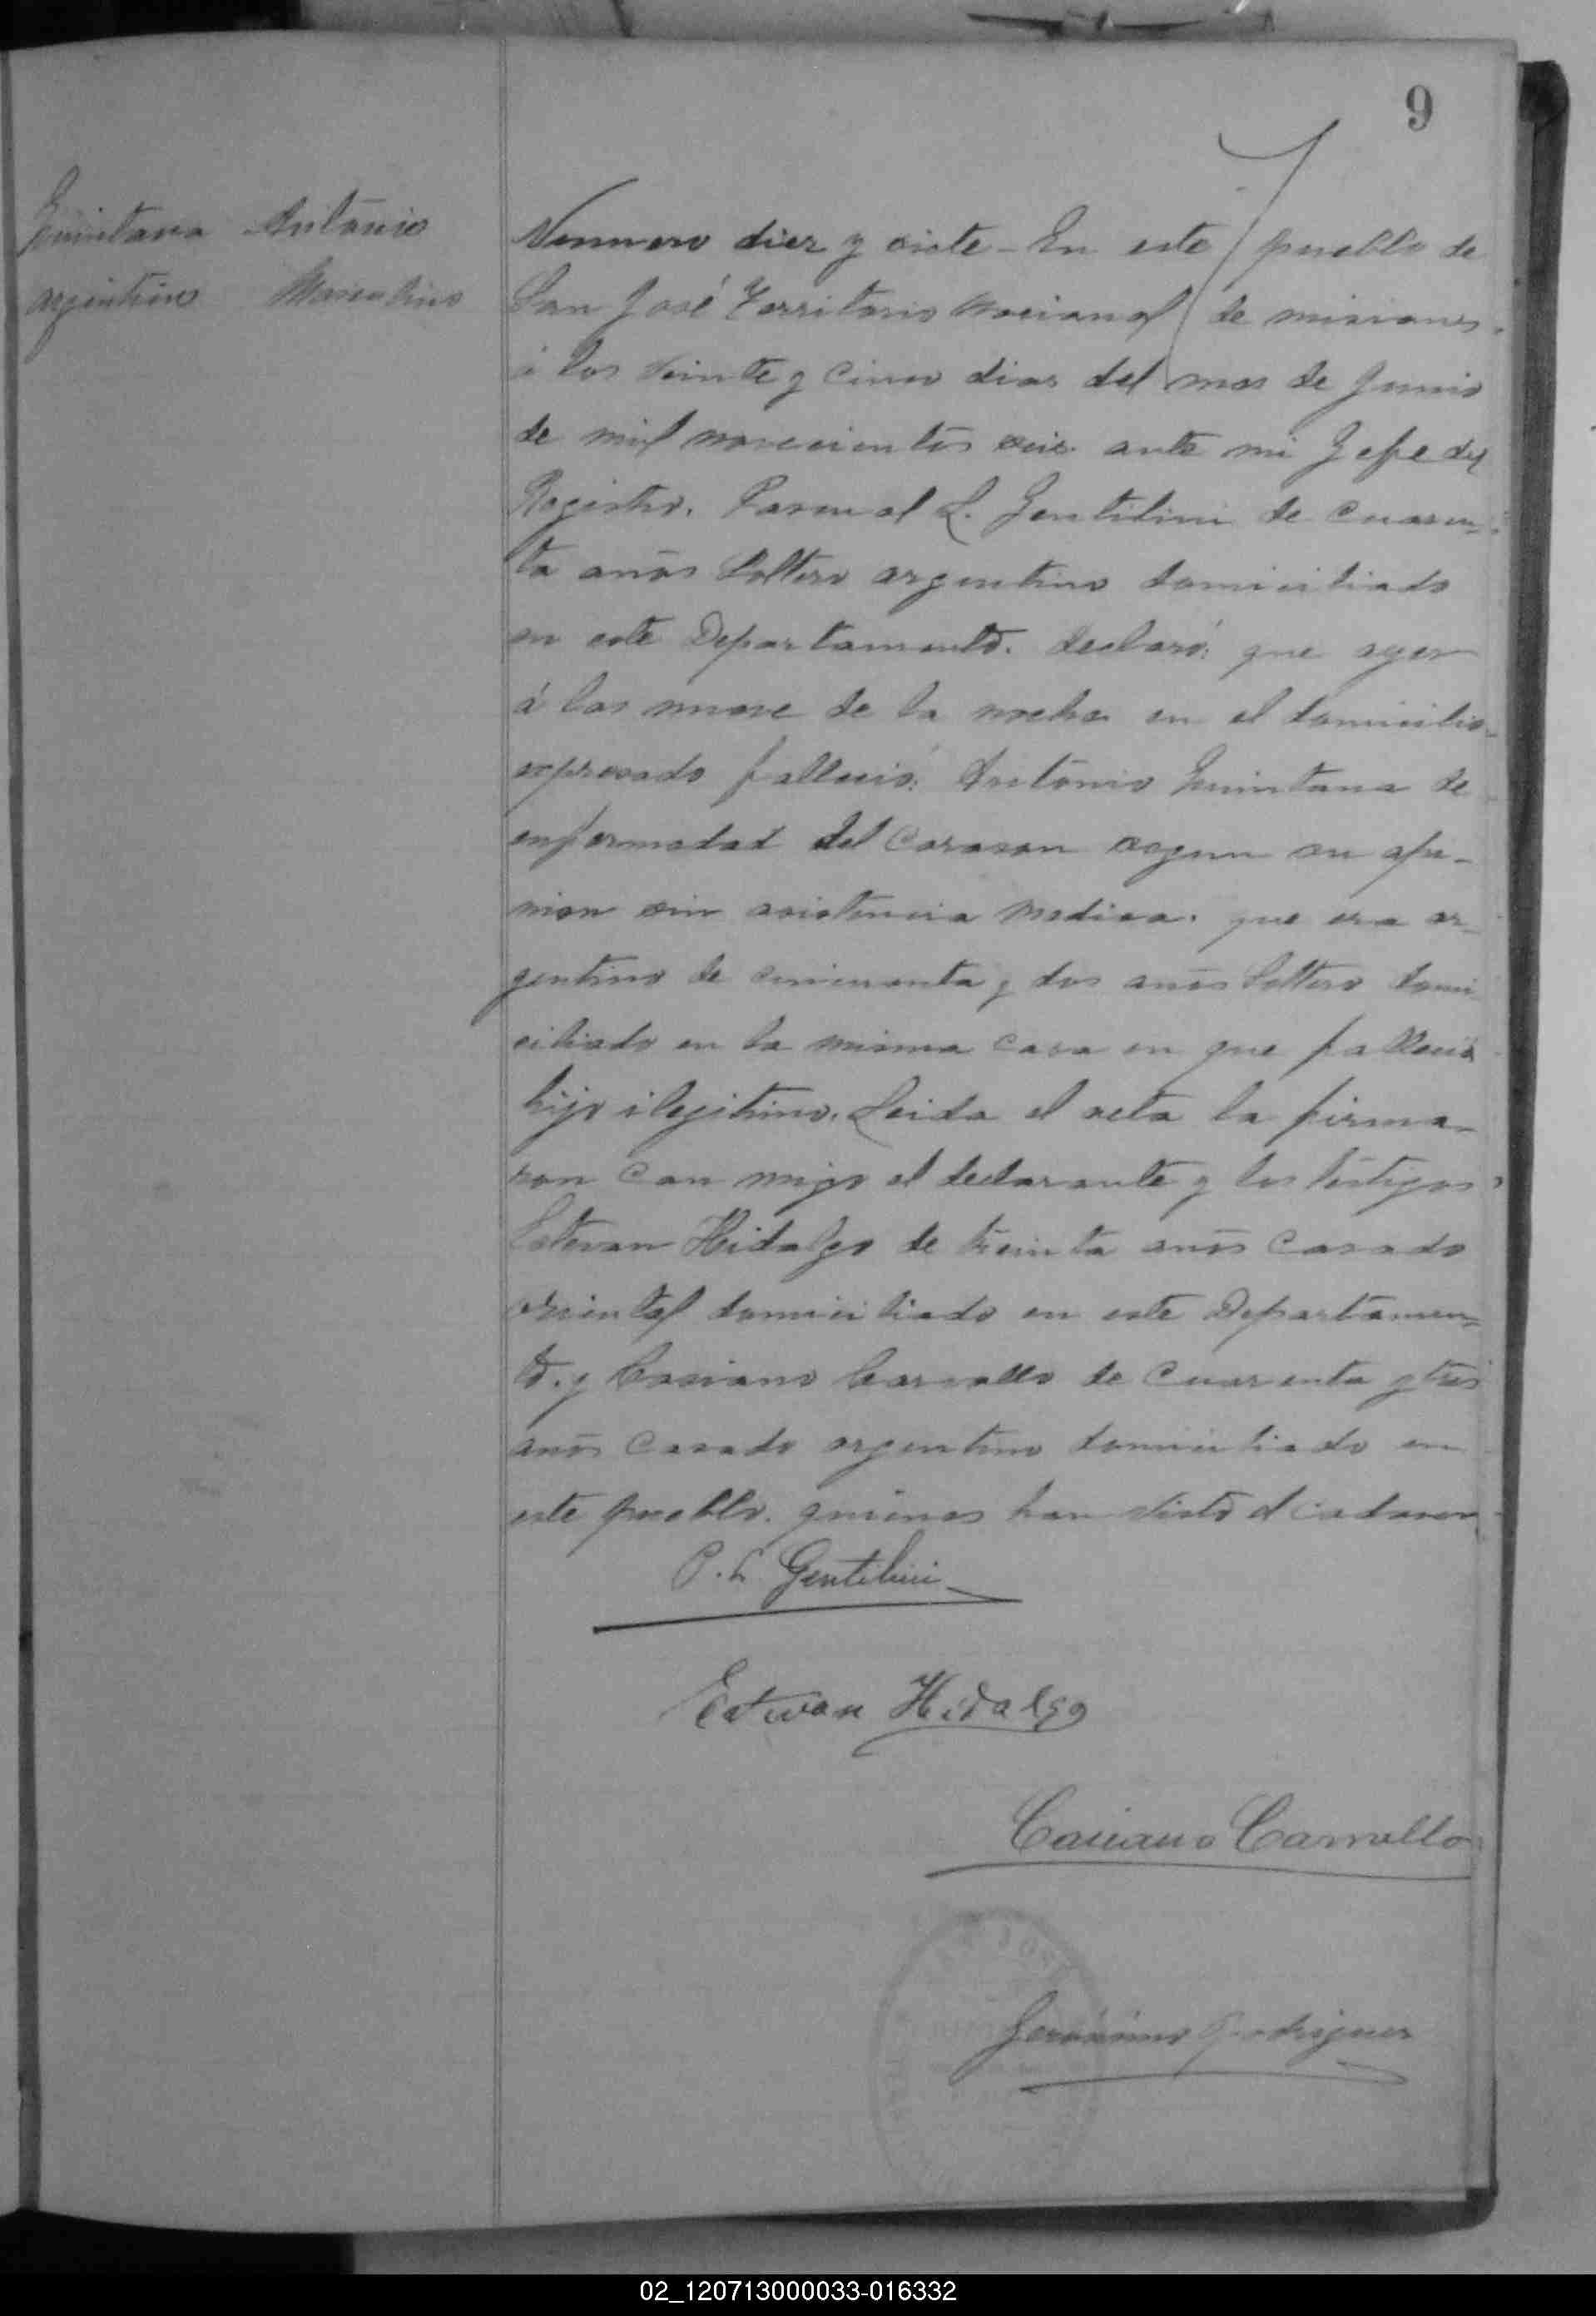 9
Quintana Antonio
argentino Masculino
Numero diez y siete - En este pueblo de
San José Territorio Nacional de misiones.
á los veinte y cinco dias del mes de Junio
de mil novecientos seis ante mi Jefe del
Registro. Pascual L. Gentilini de cuaren-
ta años Soltero argentino domiciliado
en este Departamento. declaró: que ayer
á las nueve de la noche en el domicilio
espresado fallecio: Antonio Quintana de
enfermedad del Corason segun su opi-
nion sin asistencia medica. que era ar-
gentino de cincuenta y dos años Soltero domi
ciliado en la misma casa en que fallecio
hijo ilegitimo. Leida el acta la firma-
ron con migo el declarante y los testigos
Estevan Hidalgo de treinta años Casado
oriental domiciliado en este Departamen=
to. y Casiano Carvallo de Cuarenta y tres
años Casado argentino domiciliado en
este pueblo. quienes han visto el cadaver
P. L. Gentilini
Estevan Hidalgo
Casiano Carvallo
SAN JOSE
Gerónimo Rodriguez
02_120713000033-016332